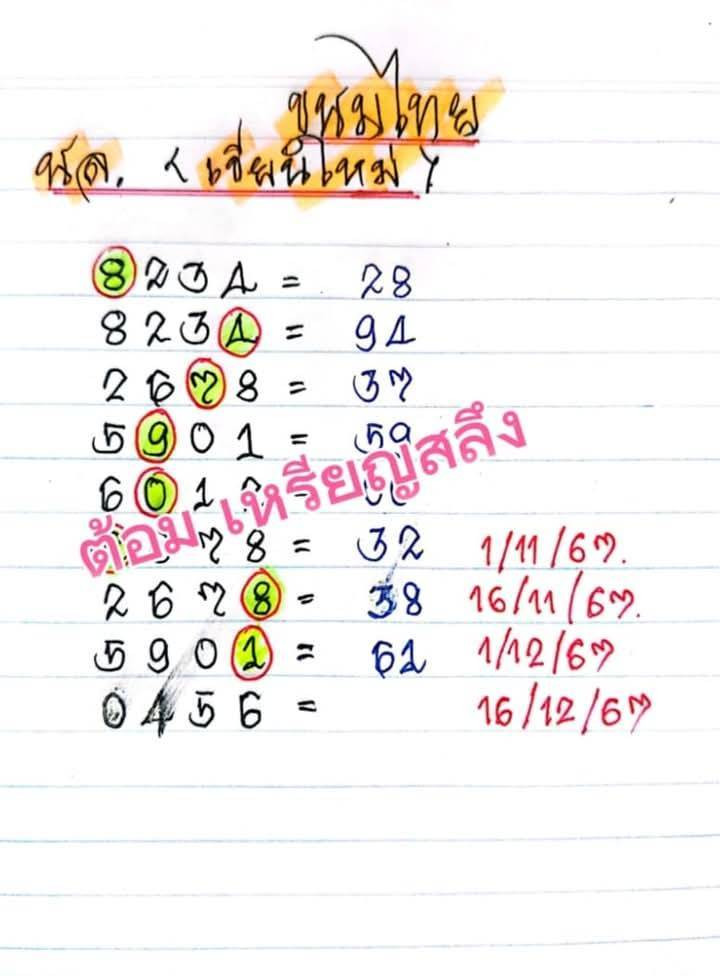 ขนมไทย
นล. < เชียงใหม่ >
8234 = 28
8234 = 94
2678 = 37
5901 = 59
601
78 = 32 1/11/67.
2678 = 38 16/11/67.
5901 = 61 1/12/67
0456 = 16/12/67
ต้อม เหรียญสลึง